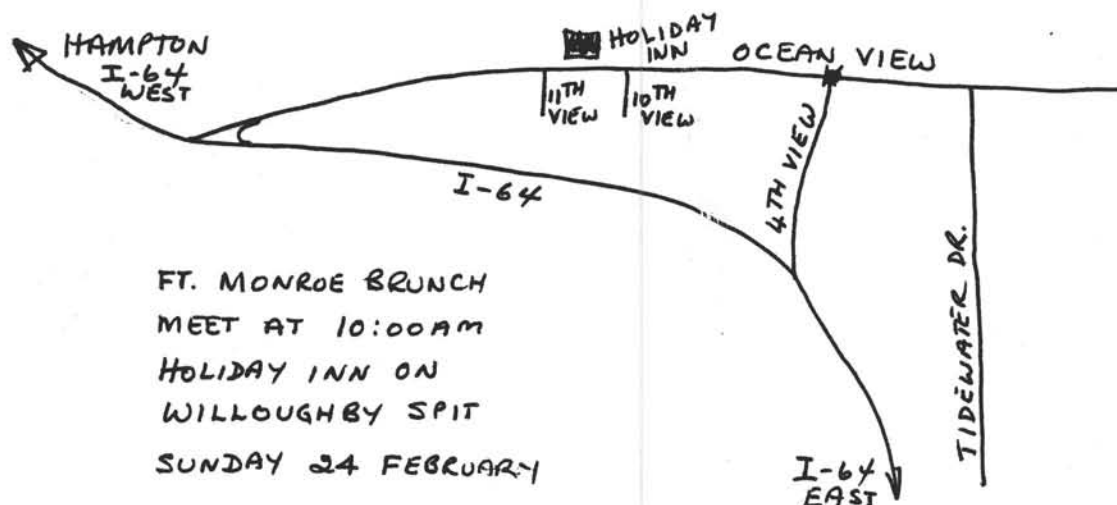 HAMPTON
I-64
WEST
HOLIDAY
INN
OCEAN VIEW
11TH
VIEW
10TH
VIEW
4TH VIEW
I-64
TIDEWATER DR.
FT. MONROE BRUNCH
MEET AT 10:00AM
HOLIDAY INN ON
WILLOUGHBY SPIT
SUNDAY 24 FEBRUARY
I-64
EAST